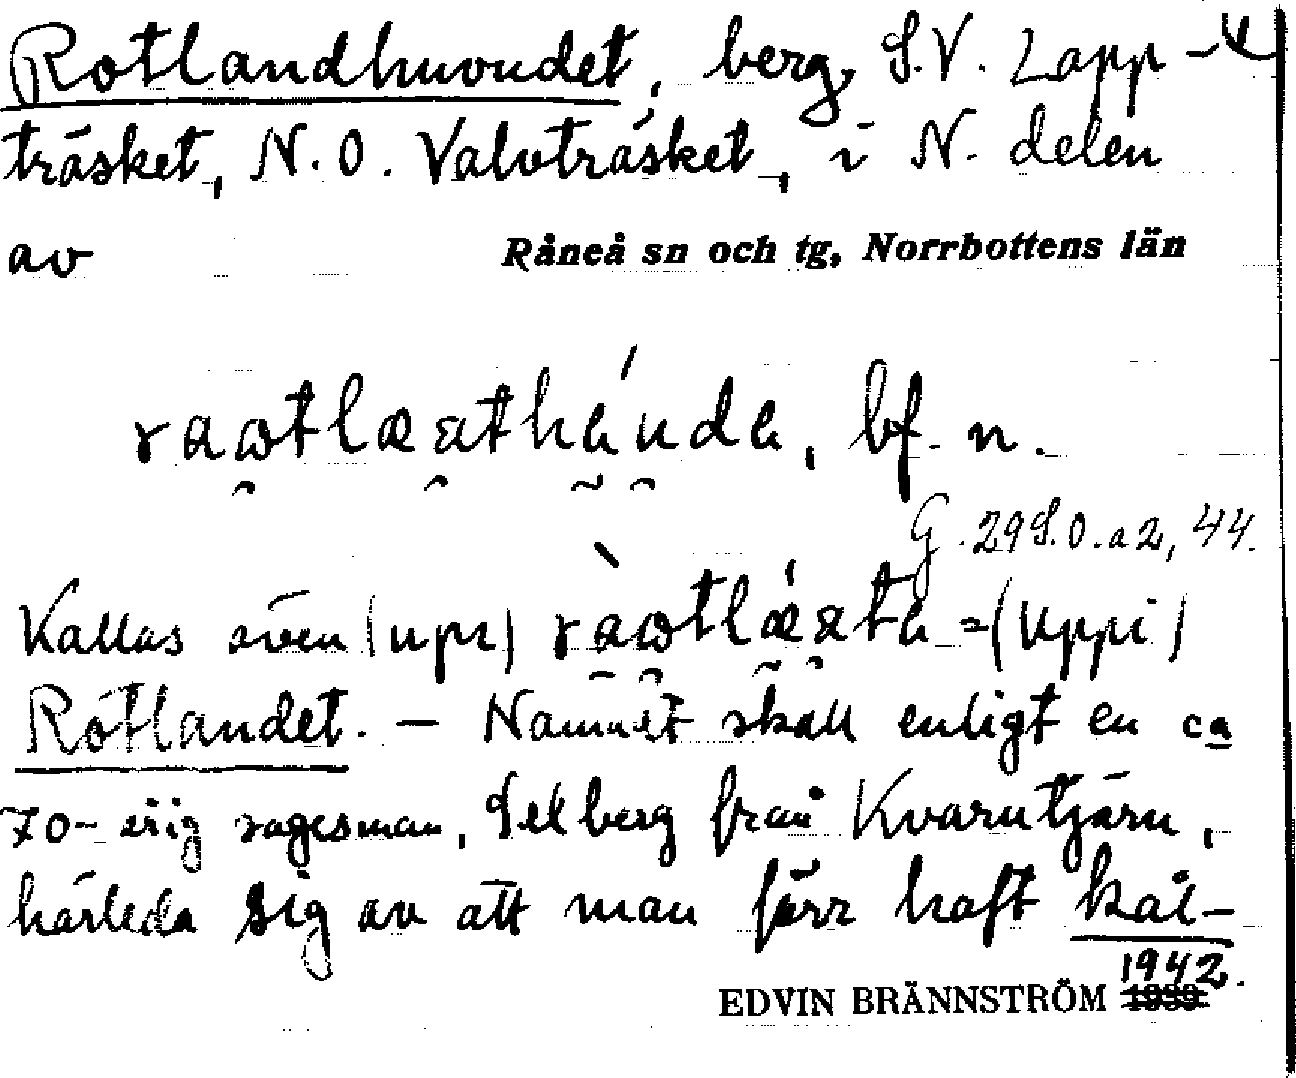 Rotlandhuvudet, berg, S.V. Lapp-
träsket, N.O. Valvträsket, i N. delen
av Råneå sn och tg, Norrbottens län
bf. n.
G. 29 S.O. a 2, 44.
Kallas även (upi) = (Uppi)
Rotlandet. – Namnet skall enligt en ca
70-årig sagesman, Selberg från Kvarntjärn,
härleda sig av att man förr haft kål-
EDVIN BRÄNNSTRÖM 1942.